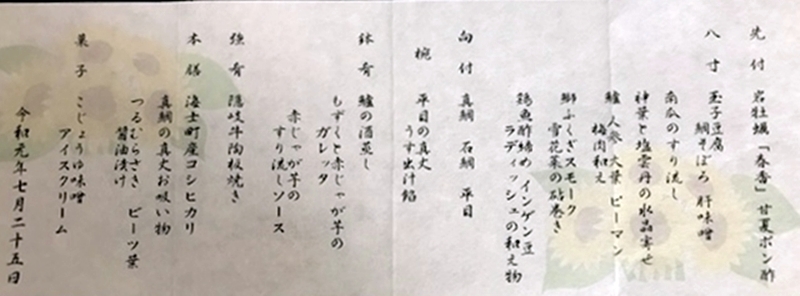 先付 岩牡蠣「春香」甘夏ポン酢
八寸 玉子豆腐
鯛そぼろ 肝味噌
南瓜のすり流し
神葉と塩雲丹の水晶寄せ
鱸 人参 大葉 ピーマン
梅肉和え
鰤ふくぎスモーク
雪花菜の砧巻き
鶏魚酢締め インゲン豆
ラディッシュの和え物
向付 真鯛 石鯛 平目
椀 平目の真丈
うす出汁餡
鉢肴 鱸の酒蒸し
もずくと赤じゃが芋の
ガレッタ
赤じゃが芋の
すり流しソース
強肴 隠岐牛陶板焼き
本膳 海士町産コシヒカリ
真鯛の真丈お吸い物
つるむらさき ビーツ葉
醤油漬け
菓子 こじょうゆ味噌
アイスクリーム
令和元年七月二十五日